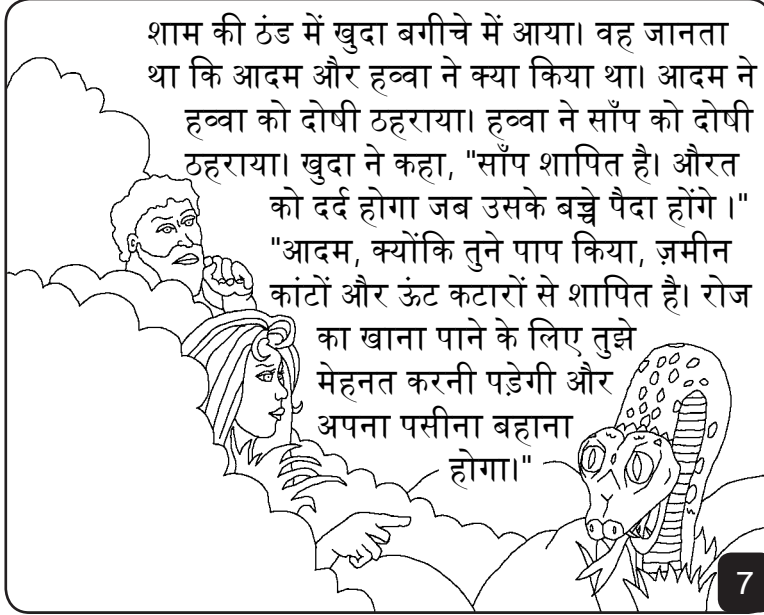 शाम की ठंड में खुदा बगीचे में आया। वह जानता
था कि आदम और हव्वा ने क्या किया था। आदम ने
हव्वा को दोषी ठहराया। हव्वा ने साँप को दोषी
ठहराया। खुदा ने कहा, "साँप शापित है। औरत
को दर्द होगा जब उसके बच्चे पैदा होंगे ।"
"आदम, क्योंकि तुने पाप किया, ज़मीन
कांटों और ऊंट कटारों से शापित है। रोज
का खाना पाने के लिए तुझे
मेहनत करनी पड़ेगी और
अपना पसीना बहाना
होगा।"
7